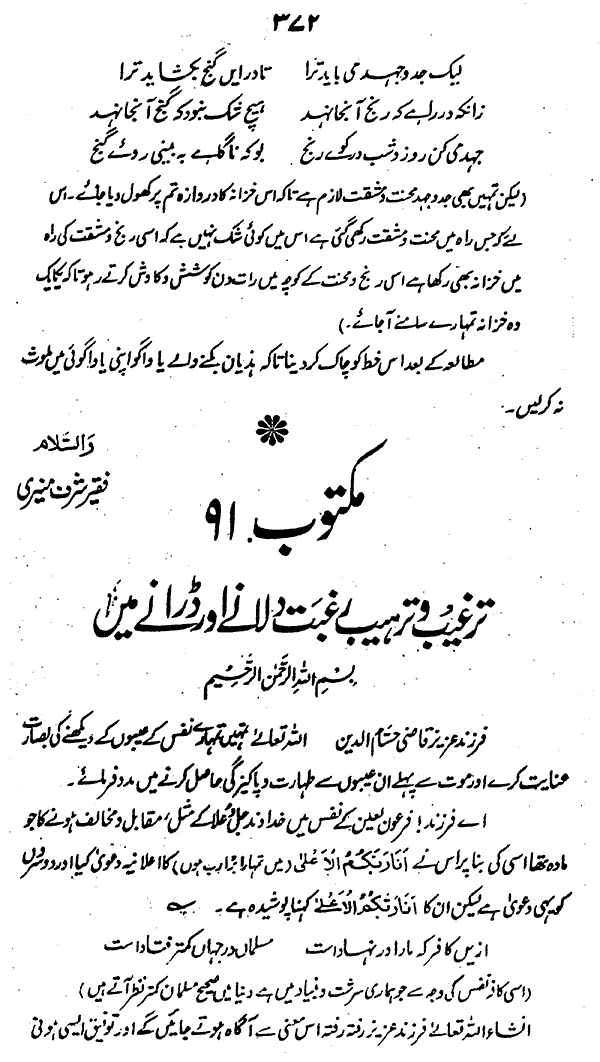 ۳۷۲
لیک جد و جہد می باید ترا تا در ایں گنج بکشاید ترا
زانکہ در راہے کہ رنج آنجا نہد ہیچ شک نبود کہ گنج آنجا نہد
جہد می کن روز و شب در کوئے رنج بو کہ ناگاہے بہ بینی روئے گنج
(لیکن تمہیں بھی جد و جہد محنت و مشقت لازم ہے تاکہ اس خزانہ کا دروازہ تم پر کھول دیا جائے۔ اس
لئے کہ جس راہ میں محنت و مشقت رکھی گئی ہے اس میں کوئی شک نہیں ہے کہ اسی رنج و مشقت کی راہ
میں خزانہ بھی رکھا ہے اس رنج و محنت کے کوچہ میں رات دن کوشش و کاوش کرتے رہو تاکہ یکایک
وہ خزانہ تمہارے سامنے آجائے۔)
مطالعہ کے بعد اس خط کو چاک کر دینا تاکہ ہذیان بکنے والے یا واگو اپنی یا واگوئی میں ملوث
نہ کرلیں۔
والسّلام
فقیر شرف منیری
مکتوب ۔ ۹۱
ترغیب و ترہیب رغبت دلانے اور ڈرانے میں
بِسْمِ اللهِ الرَّحْمٰنِ الرَّحِيْمِ
فرزند عزیز قاضی حسام الدین اللہ تعالےٰ تمہیں تمہارے نفس کے عیبوں کے دیکھنے کی بصارت
عنایت کرے اور موت سے پہلے ان عیبوں سے طہارت و پاکیزگی حاصل کرنے میں مدد فرمائے۔
اے فرزند! فرعون لعین کے نفس میں خداوند جل و علا کے مثل، مقابل و مخالف ہونے کا جو
مادہ تھا اسی کی بنا پر اس نے اَنَا رَبُّکُمُ الْاَعْلٰی (میں تمہارا بڑا رب ہوں) کا اعلانیہ دعویٰ کیا اور دوسروں
کو یہی دعویٰ ہے لیکن ان کا اَنَا رَبُّکُمُ الْاَعْلٰی کہنا پوشیدہ ہے۔
ازیں کافر کہ مارا در نہاد است مسلماں در جہاں کمتر فتاد است
(اسی کافر نفس کی وجہ سے جو ہماری سرشت و بنیاد میں ہے دنیا میں صحیح مسلمان کمتر نظر آتے ہیں)
انشاء اللہ تعالےٰ فرزند عزیز رفتہ رفتہ اس معنی سے آگاہ ہوتے جائیں گے اور توفیق ایسی ہوتی